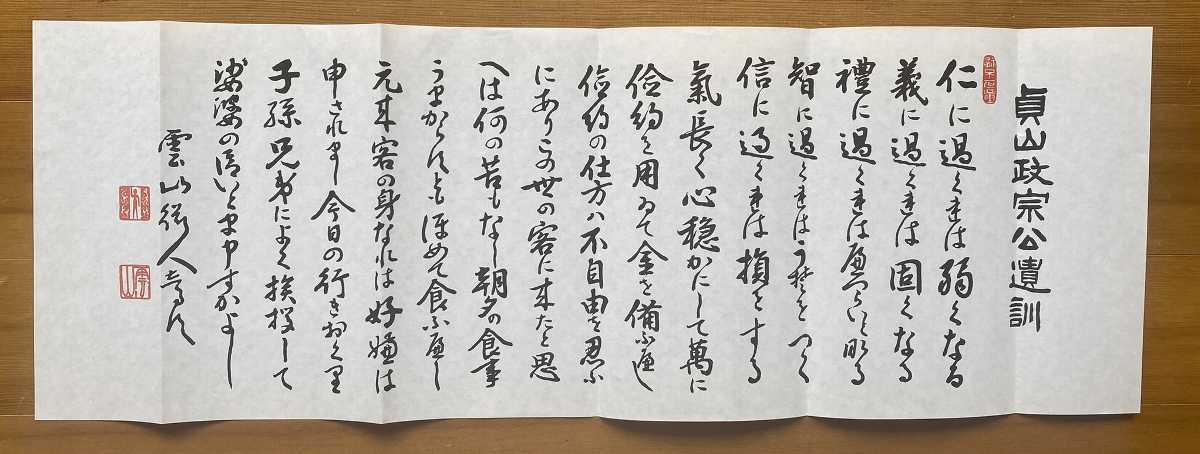 貞山政宗公遺訓
仁に過くれは弱くなる
義に過くれは固くなる
禮に過くれはへつらいとなる
智に過くれはうそをつく
信に過くれは損をする
氣長く心穏かにして萬に
倹約を用ゐて金を備ふへし
倹約の仕方ハ不自由を忍ふ
にありこの世の客に来たと思
へは何の苦もなし朝夕の食事
うまからすともほめて食ふへし
元来客の身なれは好嫌は
申されまし今日の行きおくり
子孫兄弟によく挨拶して
娑婆の御いとま申すかよし
雲山